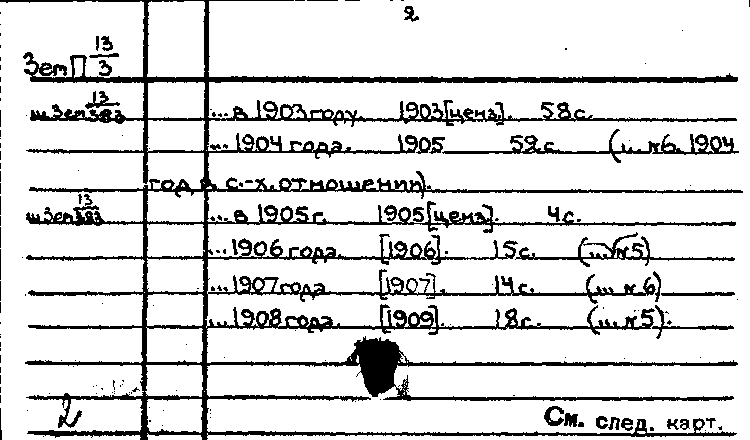 2
ЗемП 13/3
ш Зем 13/383 ... в 1903 году. 1903[ценз]. 58с.
... 1904 года. 1905 59с. (... №6. 1904
год в с.-х. отношении).
ш Зем 13/383 ... в 1905г. 1905[ценз]. 4с.
... 1906 года. [1906]. 15с. (... №5)
... 1907 года [1907]. 14с. (... №6)
... 1908 года. [1909]. 18с. (... №5).
2
См. след. карт.